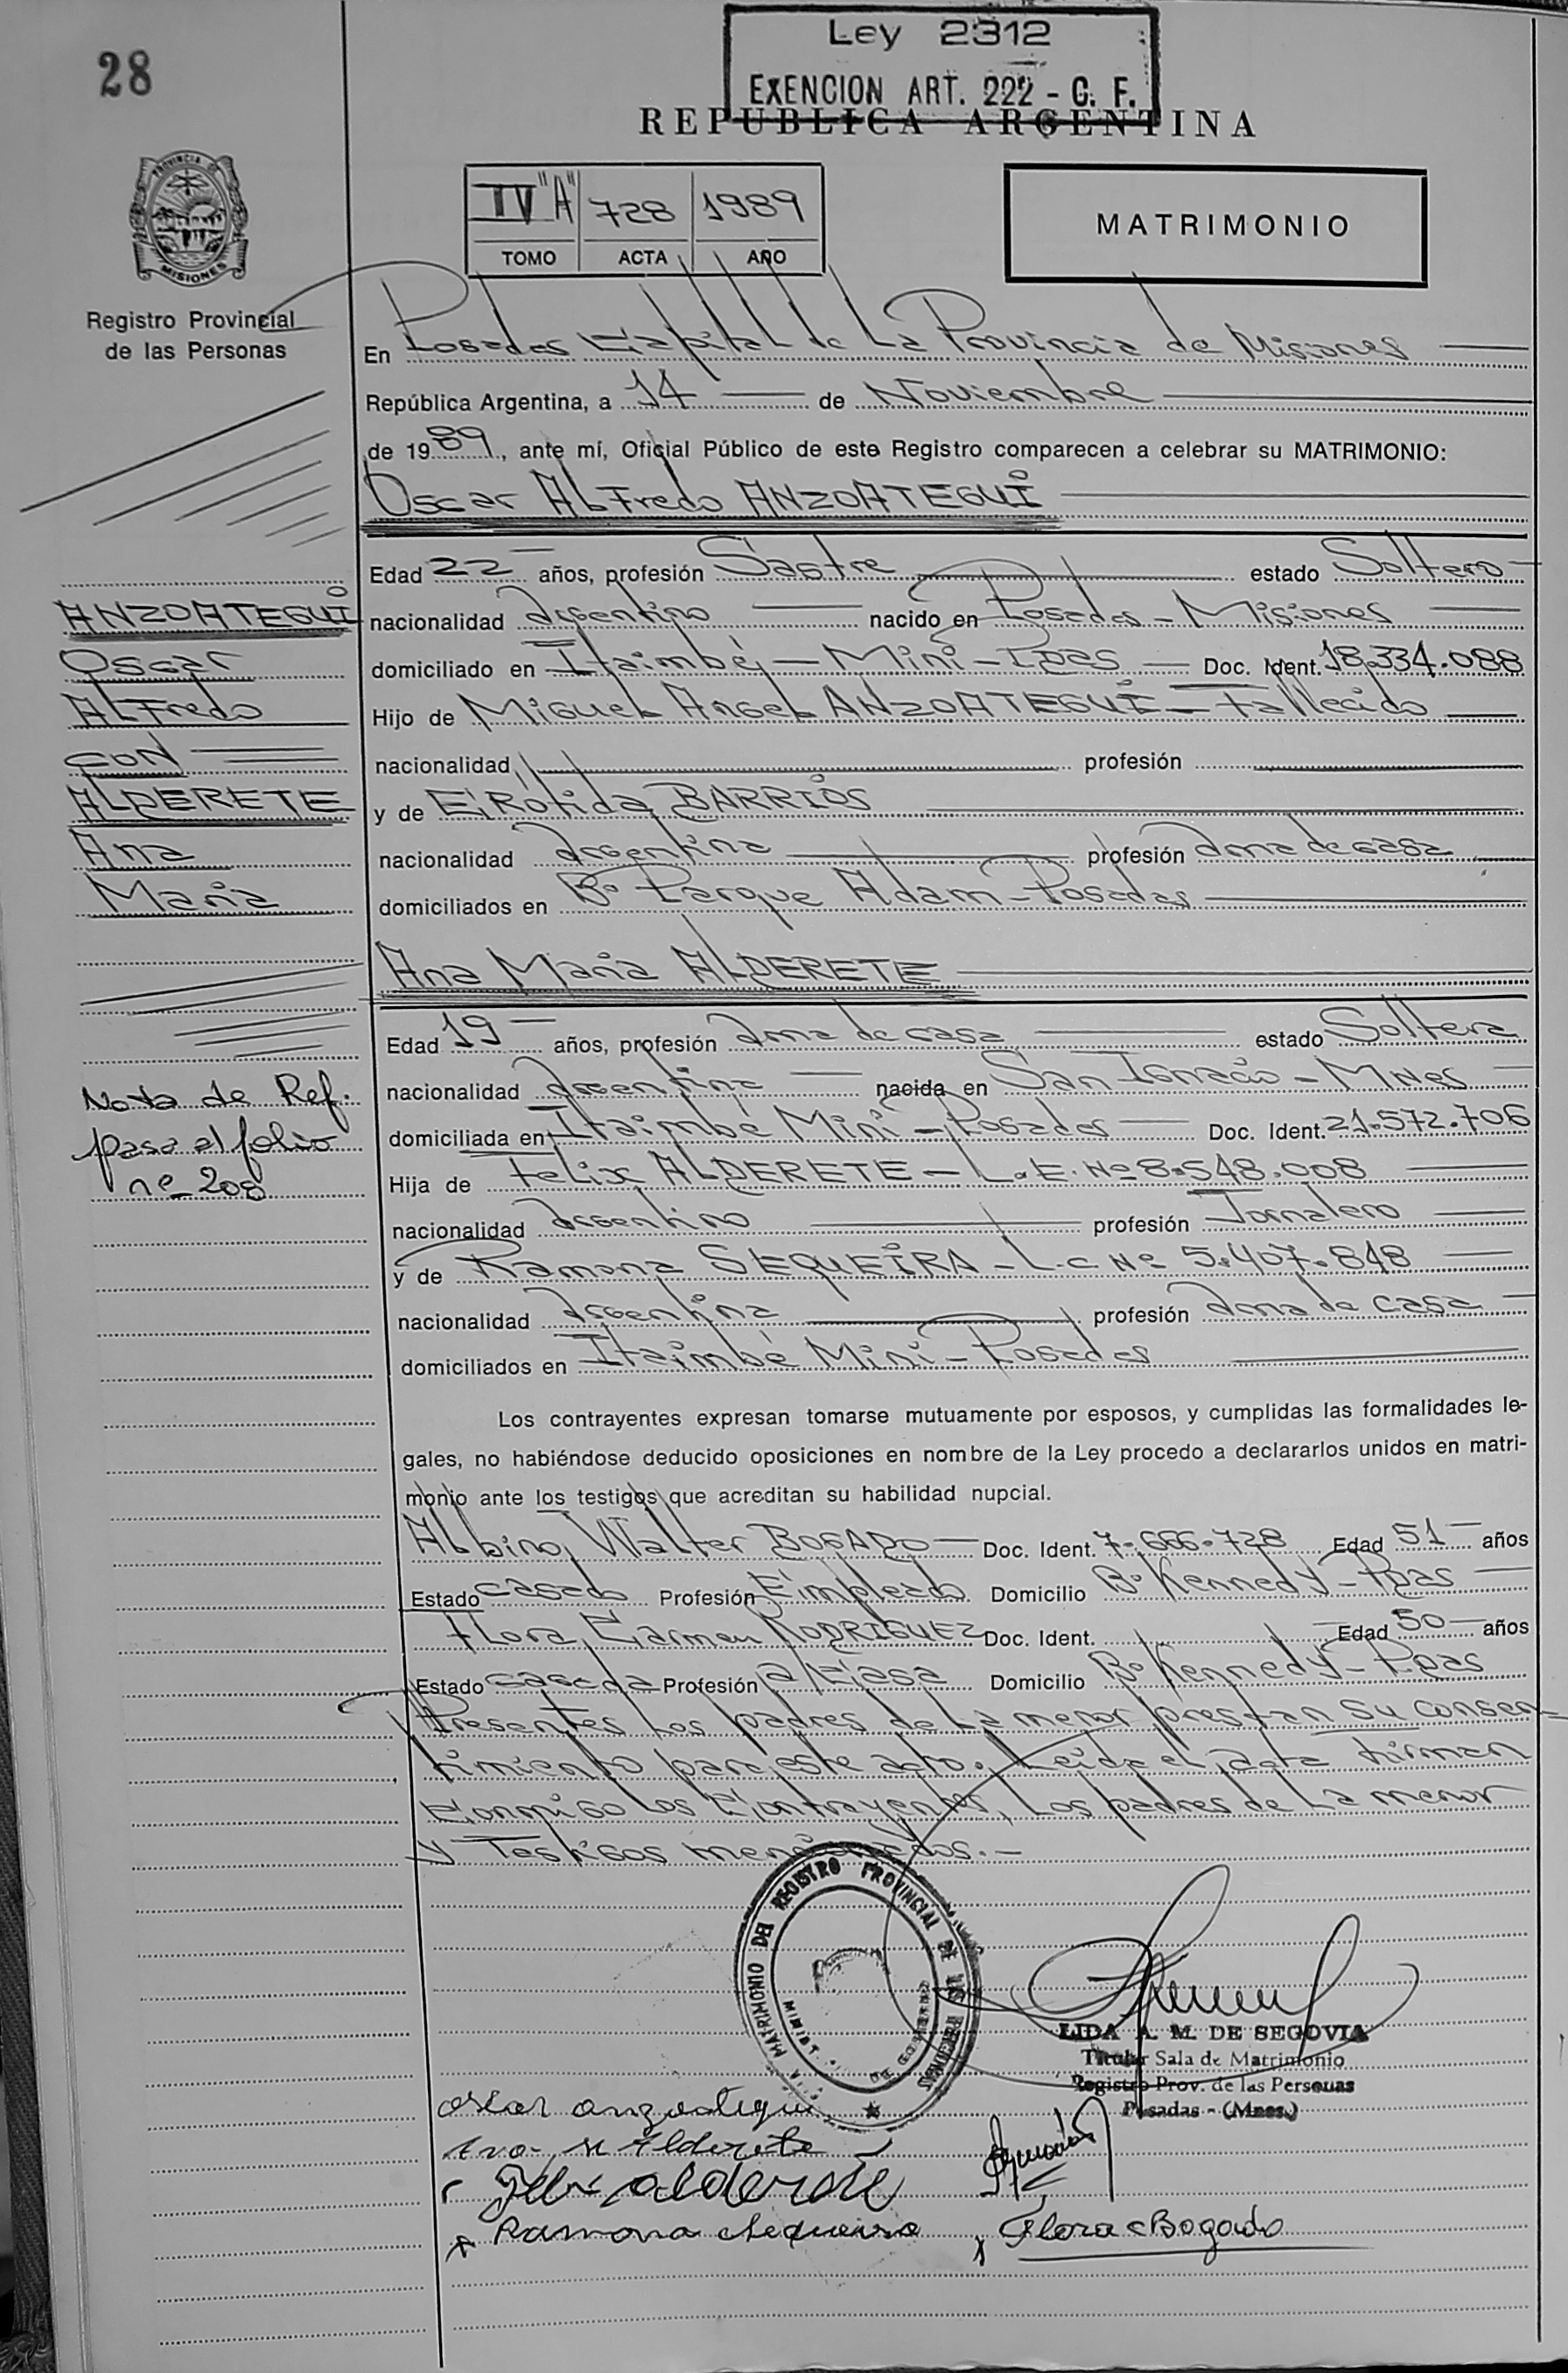 28
Ley 2312
EXENCION ART. 222 - C. F.
REPUBLICA ARGENTINA
IV "A" 728 1989
TOMO ACTA AÑO
MATRIMONIO
PROVINCIA DE MISIONES
Registro Provincial
de las Personas
En Posadas Capital de La Provincia de Misiones
República Argentina, a 14 de Noviembre
de 1989, ante mí, Oficial Público de este Registro comparecen a celebrar su MATRIMONIO:
Oscar ALFredo ANZOATEGUI
Edad 22 años, profesión Sastre estado Soltero
nacionalidad Argentino nacido en Posadas - Misiones
domiciliado en Itaimbé - Mini - Pdas Doc. Ident. 18.334.088
Hijo de Miguel Angel ANZOATEGUI - Fallecido
nacionalidad profesión
y de Erótida BARRIOS
nacionalidad Argentina profesión Ama de casa
domiciliados en Bº Parque Adam - Posadas
ANZOATEGUI
Oscar
ALFredo
CON
ALDERETE
Ana
María
Ana María ALDERETE
Edad 19 años, profesión Ama de casa estado Soltera
nacionalidad Argentina nacida en San Ignacio - Mnes
domiciliada en Itaimbé Mini - Posadas Doc. Ident. 21.572.706
Hija de Felix ALDERETE - L.E. Nº 8.548.008
nacionalidad Argentino profesión Jornalero
y de Ramona SEQUEIRA - L.C Nº 5.407.848
nacionalidad Argentina profesión Ama de casa
domiciliados en Itaimbé Mini - Posadas
Nota de Ref.
pasa al folio
nº 208
Los contrayentes expresan tomarse mutuamente por esposos, y cumplidas las formalidades le-
gales, no habiéndose deducido oposiciones en nombre de la Ley procedo a declararlos unidos en matri-
monio ante los testigos que acreditan su habilidad nupcial.
Albino Walter BOGADO Doc. Ident. 7.666.728 Edad 51 años
Estado casado Profesión Empleado Domicilio Bº Kennedy - Pdas
Flora Carmen RODRIGUEZ Doc. Ident. Edad 50 años
Estado casada Profesión a/ Casa Domicilio Bº Kennedy - Pdas
Presentes Los padres de La menor prestan su consen-
timiento para este acto. Leida el acta Firman
Conmigo Los Contrayentes, Los padres de La menor
y Testigos mencionados.-
MATRIMONIO DEL REGISTRO PROVINCIAL DE LAS PERSONAS
MINIST. DE GOBIERNO
LIDA A. M. DE SEGOVIA
Titular Sala de Matrimonio
Registro Prov. de las Personas
Posadas - (Mnes.)
oscar anzoategui
Ana M Alderete
Felix alderete
Ramona Sequeira
Flora Bogado